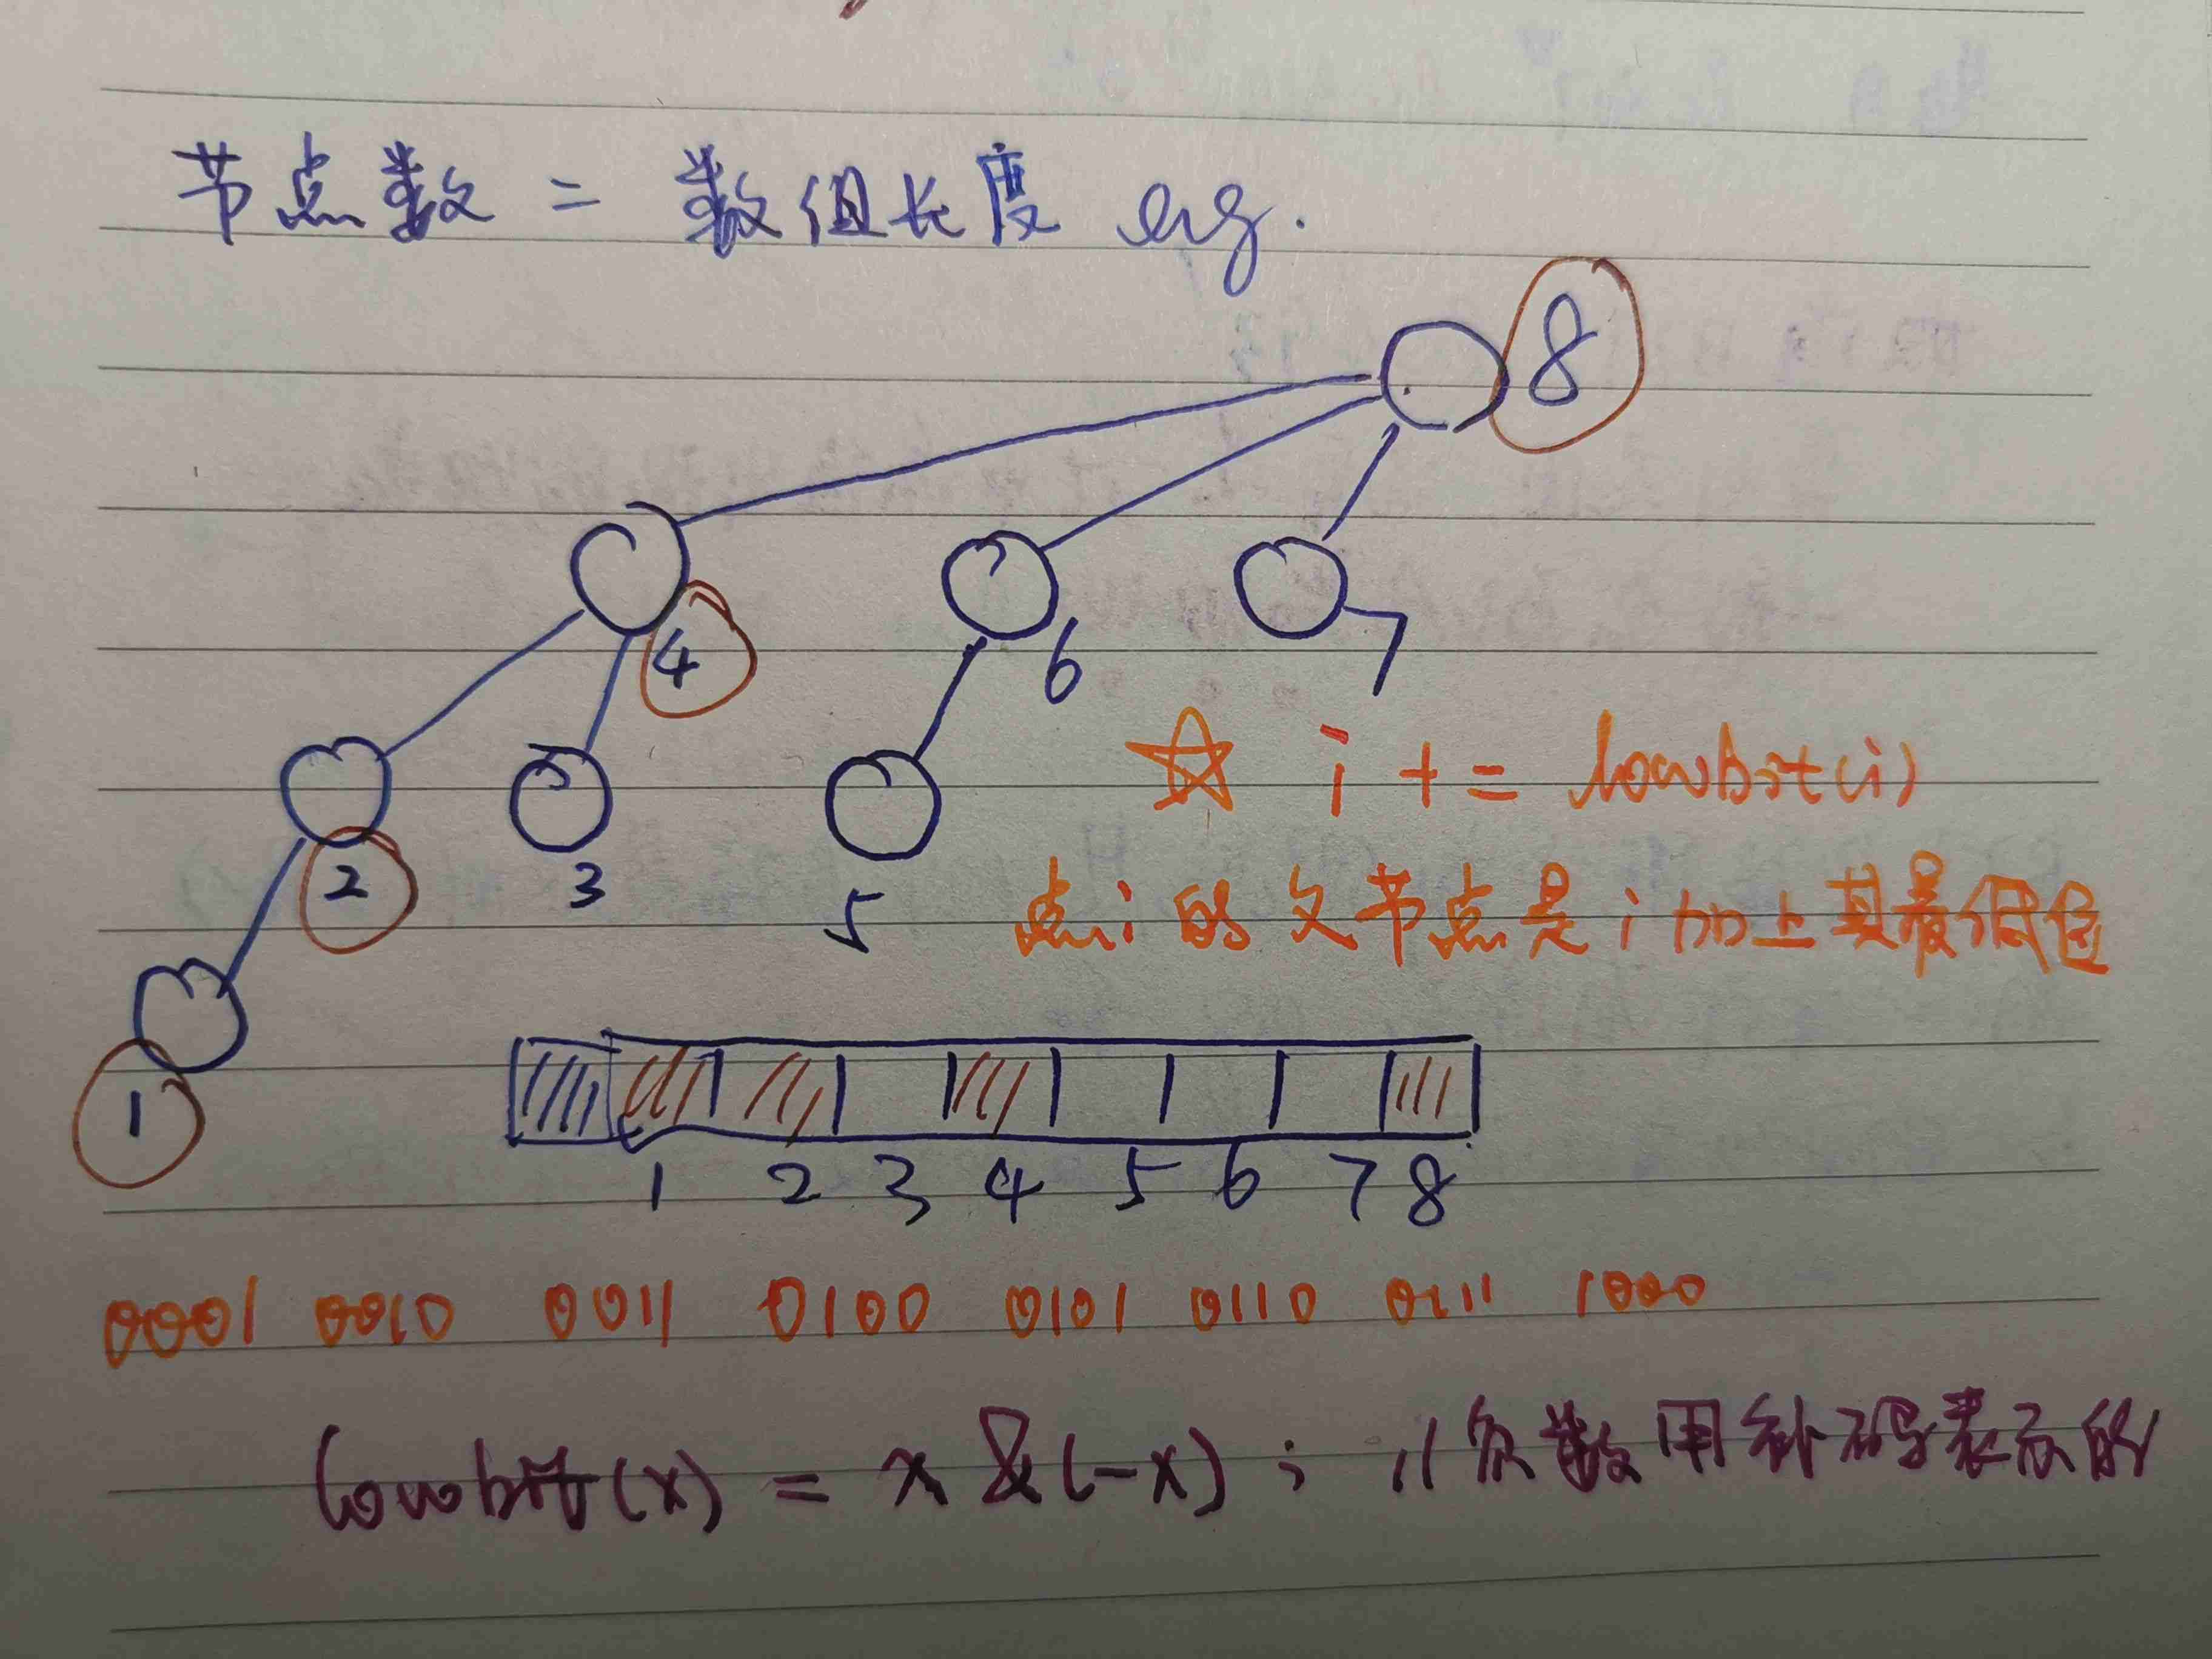 节点数 = 数组长度 eg.
8
4 6 7
☆ i += lowbit(i)
2 3 5
点i的父节点是i加上其最低位
1
1 2 3 4 5 6 7 8
0001 0010 0011 0100 0101 0110 0111 1000
lowbit(x) = x&(-x); //负数用补码表示的